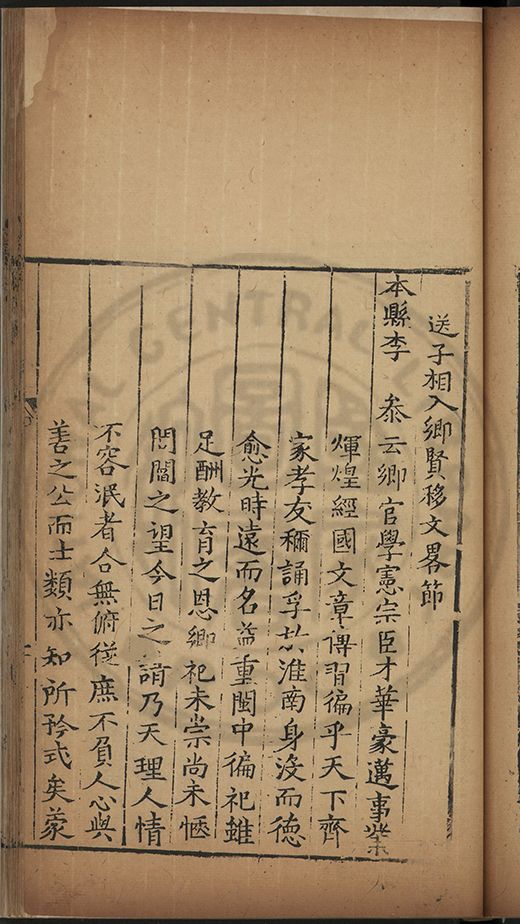 送子相入鄉賢移文畧節
本縣李 叅云鄉官學憲宗臣才華豪邁事業
輝煌經國文章傳習徧乎天下齊
家孝友稱誦孚於淮南身沒而德
愈光時遠而名益重閩中徧祀雖
足酬教育之恩鄉祀未崇尚未愜
閭閻之望今日之請乃天理人情
不容泯者合無俯從庶不負人心與
善之公而士類亦知所矜式矣蒙